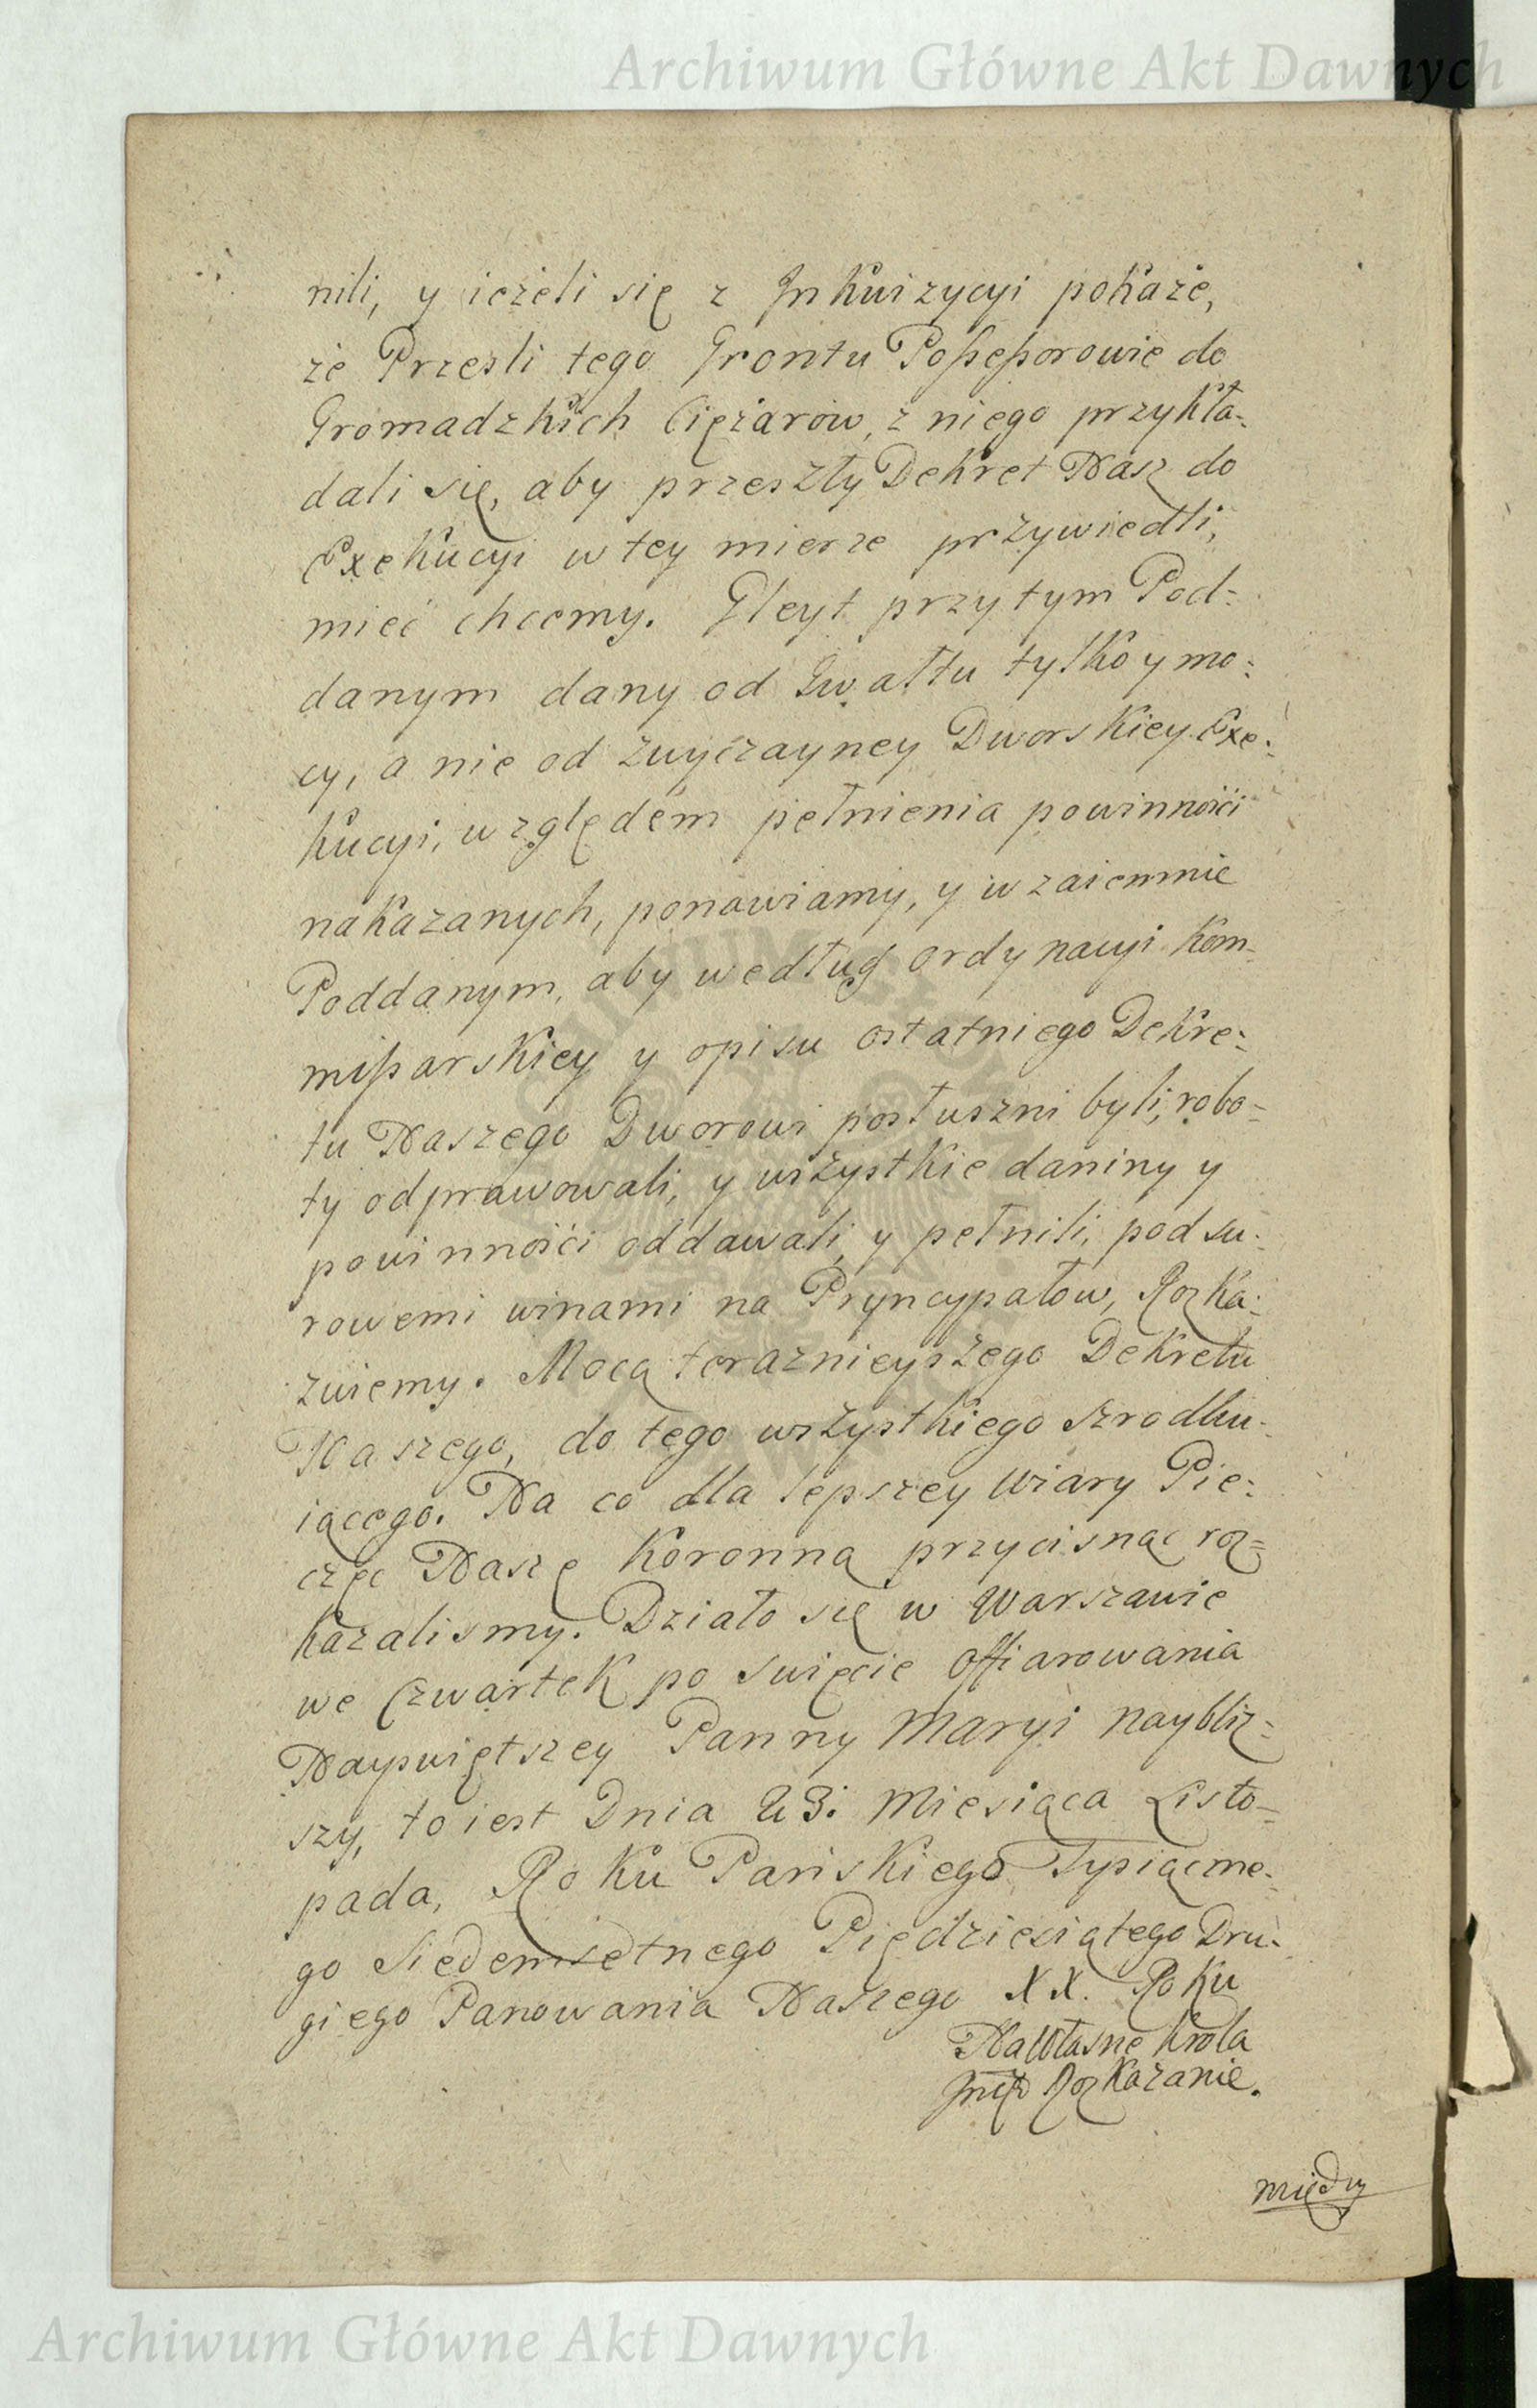 Archiwum Główne Akt Dawnych
nili, y ieżeli się z Inkwizycyi pokaże,
że Przesli tego Grontu Possessorowie do
Gromadzkich Ciężarow, z niego przykła-
dali się, aby przeszły Dekret Nasz do
Exekucyi w tey mierze przywiedli,
mieć chcemy. Gleyt przytym Pod-
danym dany od Gwałtu tylko y mo-
cy, a nie od zwyczayney Dworskiey Exe-
kucyi, względem pełnienia powinności
nakazanych, ponawiamy, y wzaiemnie
Poddanym, aby według ordynacyi Kom-
missarskiey y opisu ostatniego Dekre-
tu Naszego Dworowi posłuszni byli, robo-
ty odprawowali, y wszystkie daniny y
powinności oddawali, y pełnili, pod su-
rowemi winami na Pryncypałow, Rozka-
zuiemy. Mocą teraznieyszego Dekretu
Naszego, do tego wszystkiego szrodku-
iącego. Na co dla lepszey Wiary Pie-
częc Naszę Koronną przycisnąc roz-
kazalismy. Działo się w Warszawie
we Czwartek po swięcie Offiarowania
Nayswiętszey Panny Maryi naybliz-
szy, to iest Dnia 23. Miesiąca Listo-
pada, Roku Pańskiego Tysiączne-
go Siedemsetnego Pięcdziesiątego Dru-
giego Panowania Naszego XX. Roku
Na Własne Krola
Jmci Rozkazanie.
między
Archiwum Główne Akt Dawnych